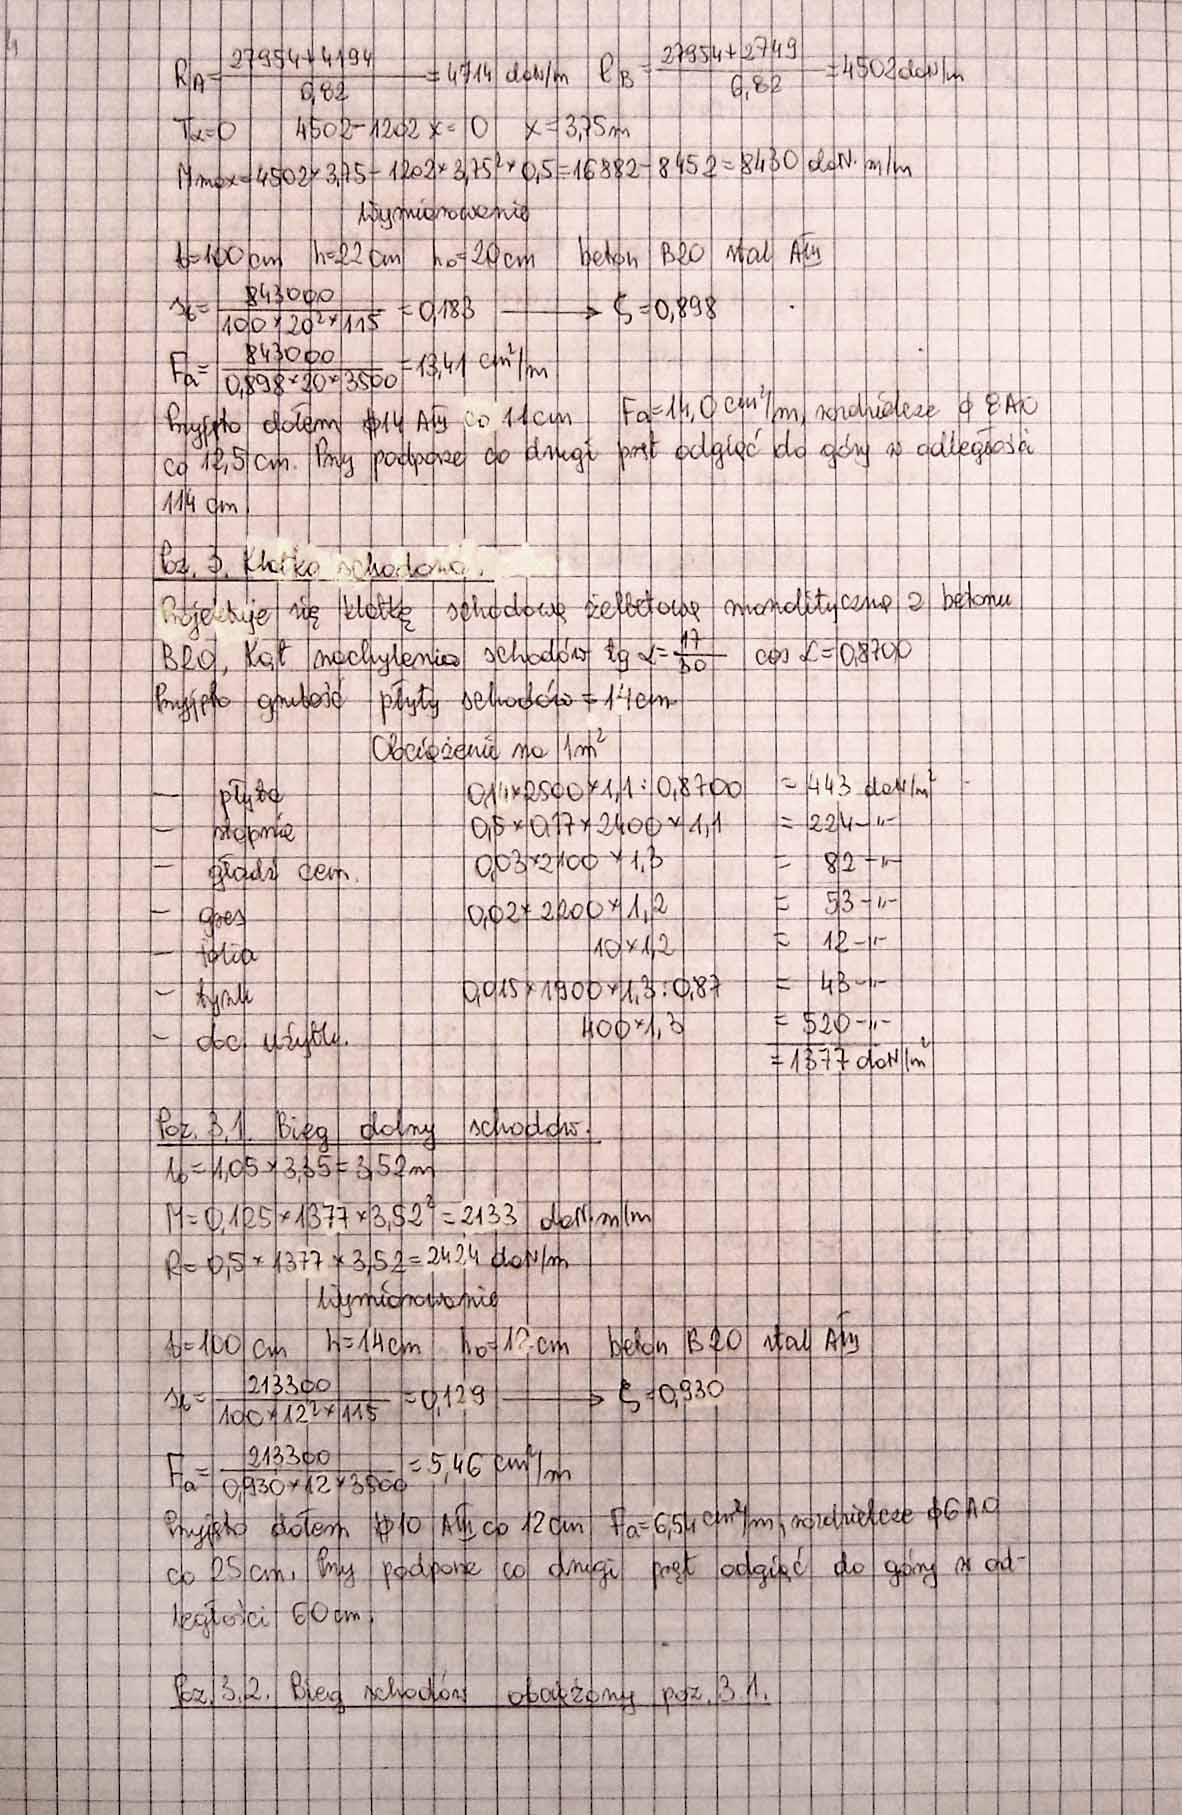 R_A = (27954+4194)/6,82 = 4714 daN/m R_B = (27954+2749)/6,82 = 4502 daN/m
Tx=0 4502-1202x=0 x=3,75m
Mmax=4502×3,75-1202×3,75²×0,5=16882-8452=8430 daN·m/m
Wymiarowanie
b=100cm h=22cm h₀=20cm beton B20 stal AIII
s_b = 843000/(100×20²×115) = 0,183 → ζ=0,898
F_a = 843000/(0,898×20×3500) = 13,41 cm²/m
Przyjęto dołem ϕ14 AIII co 11cm Fa=14,0cm²/m, rozdzielcze ϕ8 A0
co 12,5cm. Przy podporze co drugi pręt odgiąć do góry w odległości
114cm.
Poz. 3. Klatka schodowa.
Projektuje się klatkę schodową żelbetową monolityczną z betonu
B20, Kąt nachylenia schodów tg α=17/30 cos α=0,8700
Przyjęto grubość płyty schodów = 14cm
Obciążenie na 1m²
- płyta 0,14×2500×1,1:0,8700 = 443 daN/m²
- stopnie 0,5×0,17×2400×1,1 = 224 -"-
- gładź cem. 0,03×2100×1,3 = 82 -"-
- gres 0,02×2200×1,2 = 53 -"-
- folia 10×1,2 = 12 -"-
- tynk 0,015×1900×1,3:0,87 = 43 -"-
- obc. użytk. 400×1,3 = 520 -"-
=1377 daN/m²
Poz. 3.1. Bieg dolny schodów.
l₀=1,05×3,35=3,52m
M=0,125×1377×3,52²=2133 daN·m/m
R=0,5×1377×3,52=2424 daN/m
Wymiarowanie
b=100cm h=14cm h₀=12cm beton B20 stal AIII
s_b = 213300/(100×12²×115) = 0,129 → ζ=0,930
F_a = 213300/(0,930×12×3500) = 5,46 cm²/m
Przyjęto dołem ϕ10 AIII co 12cm Fa=6,54cm²/m, rozdzielcze ϕ6 A0
co 25cm. Przy podporze co drugi pręt odgiąć do góry w od-
ległości 60cm.
Poz. 3.2. Bieg schodów obciążony poz. 3.1.